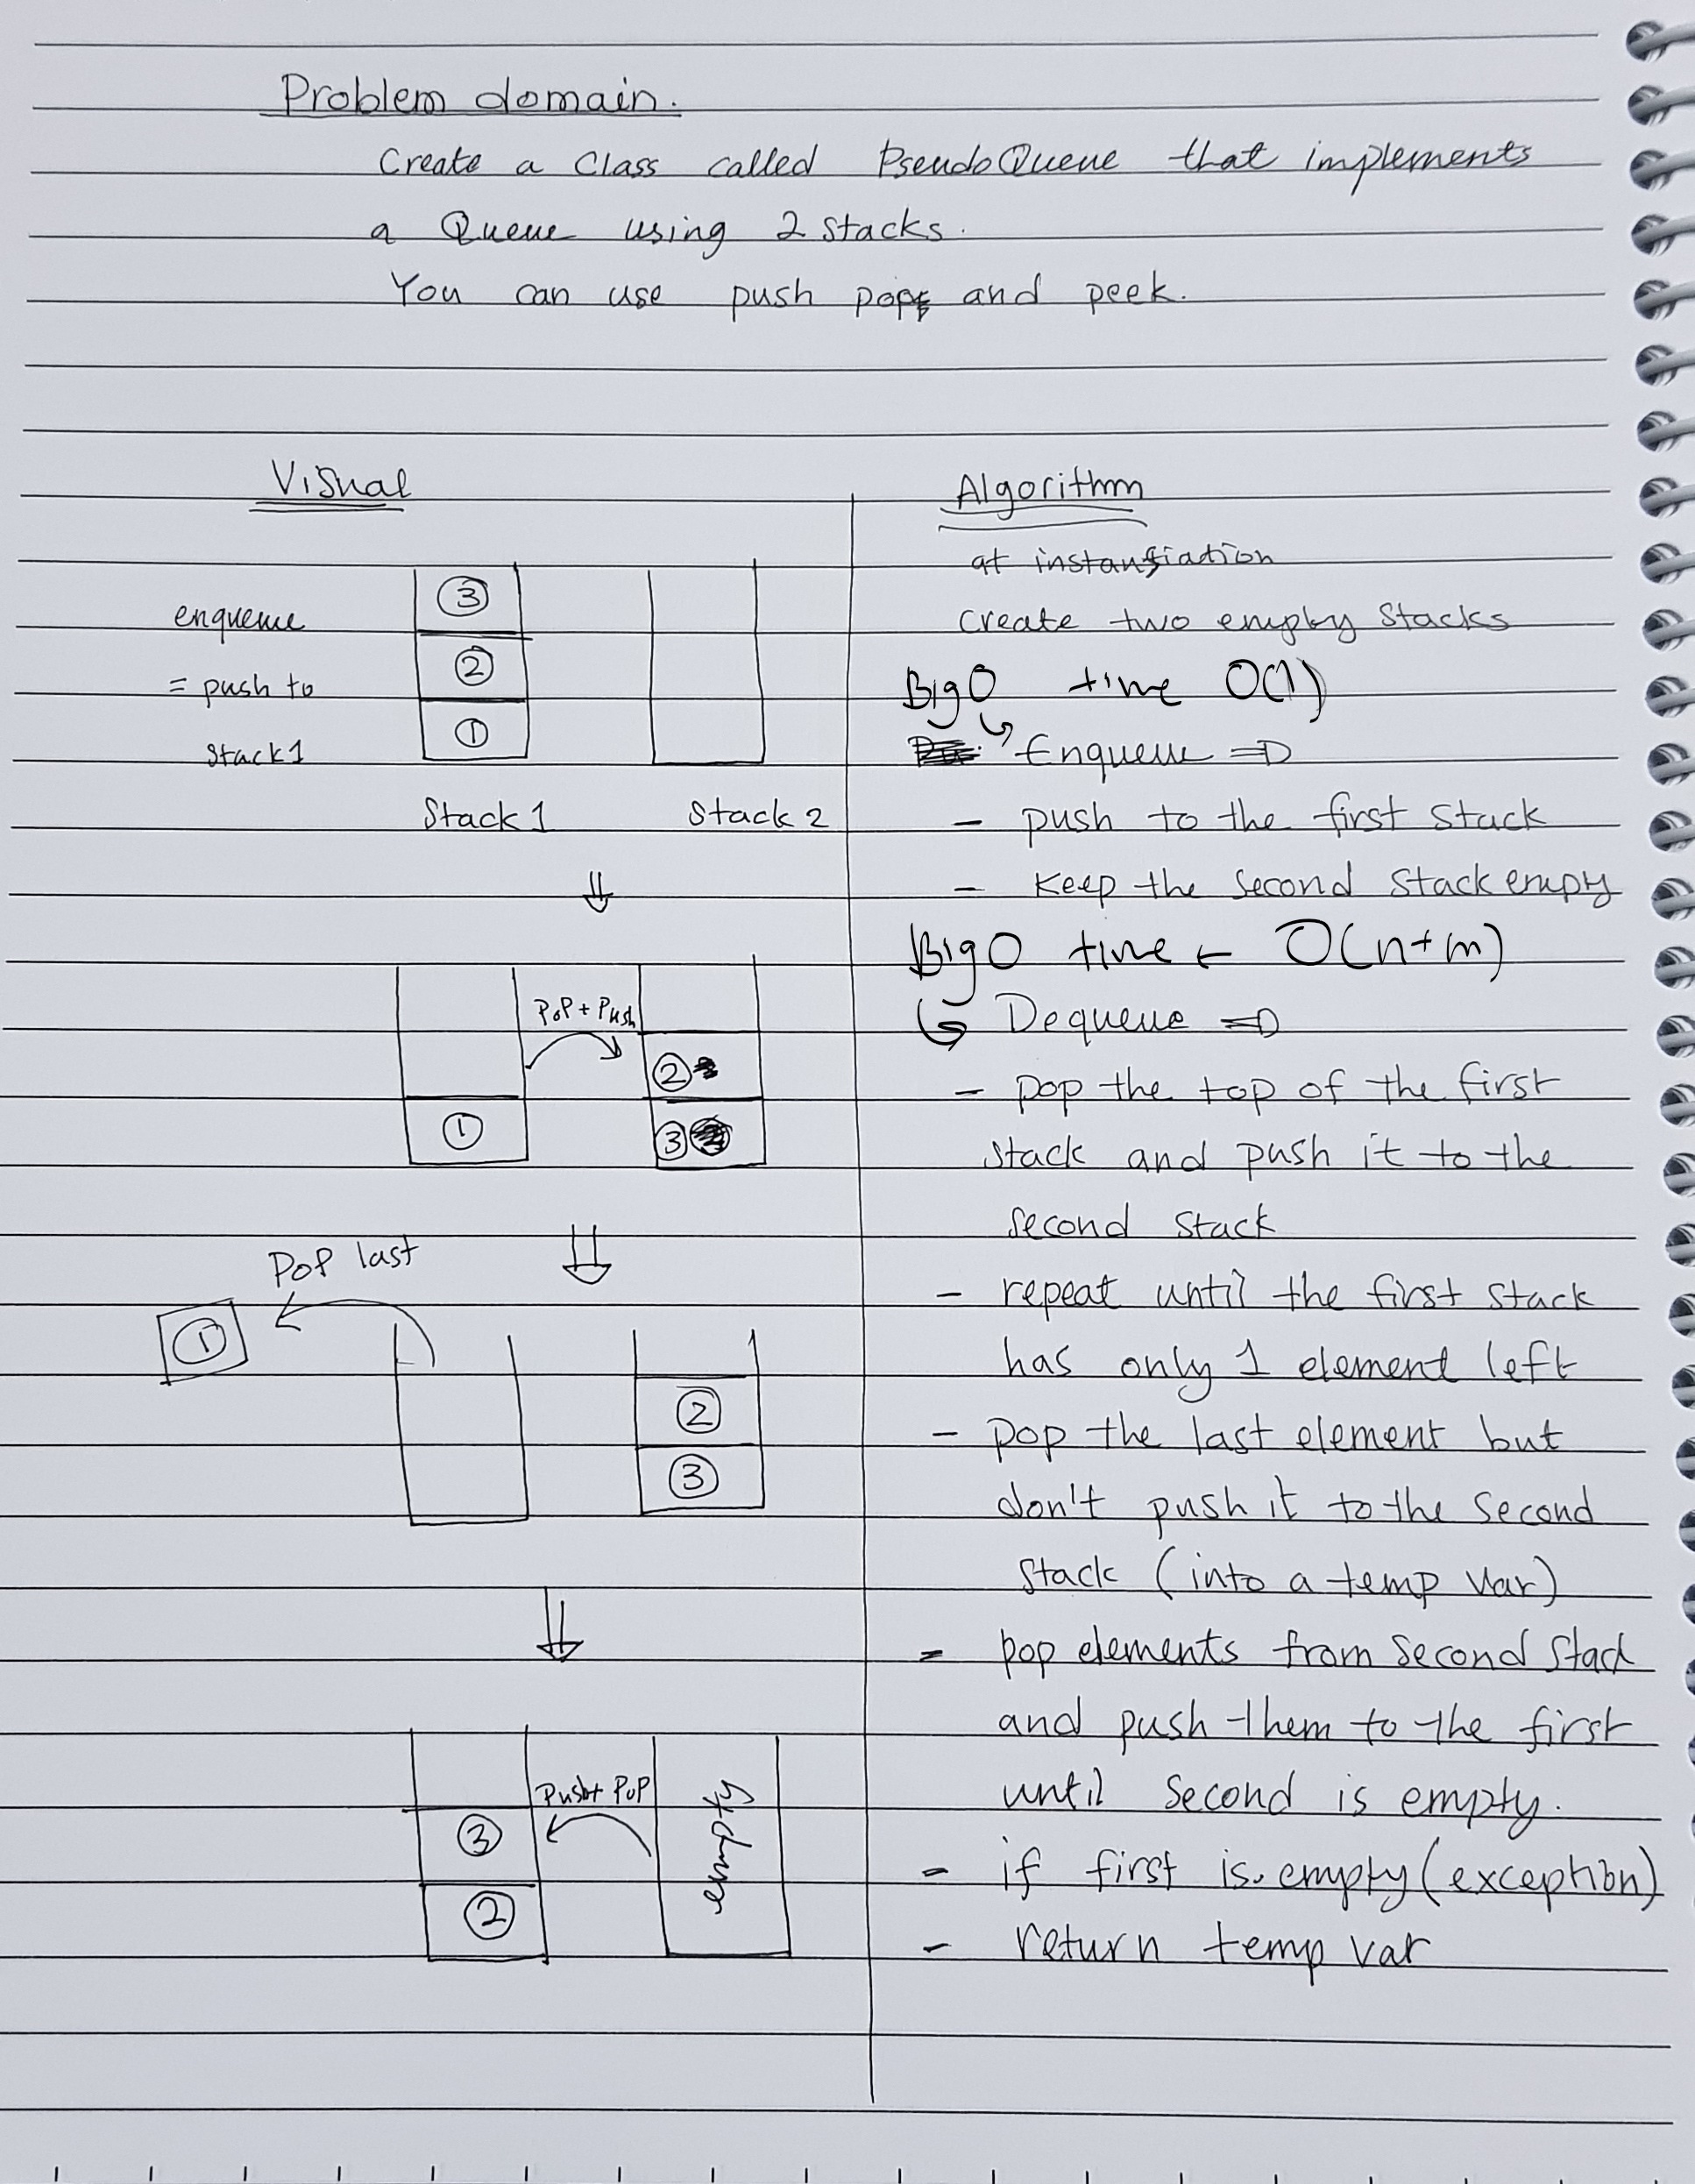 Problem domain.
Create a Class called PseudoQueue that implements
a Queue using 2 stacks.
You can use push pop, and peek.
Visual
enqueue
= push to
stack1
3
2
1
Stack 1 Stack 2
⇓
Pop + Push
1
2
3
⇓
Pop last
1
2
3
⇓
Push+ Pop
3
2
empty
Algorithm
at instantiation
create two empty Stacks
Big O time O(1)
Enqueue ⇒
- push to the first stack
- Keep the second stack empy
Big O time ← O(n+m)
↳ Dequeue ⇒
- pop the top of the first
stack and push it to the
second stack
- repeat until the first stack
has only 1 element left
- pop the last element but
don't push it to the second
stack (into a temp var)
- pop elements from second stack
and push them to the first
until second is empty.
- if first is empty (exception)
- return temp var